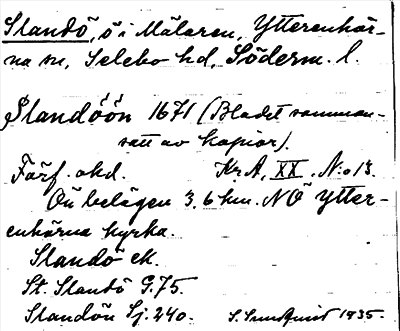 Slandö, ö i Mälaren, Ytterenhör-
na sn, Selebo hd, Söderm. l.
Slandöön 1671 (Bladet samman-
satt av kopior).
Förf. okd. KrA, XX, N:o 13.
Ön belägen 3,6 km. NÖ Ytter-
enhörna kyrka.
Slandö ek.
St. Slandö G.75.
Slandön Sj. 240. S. Sundquist 1935.